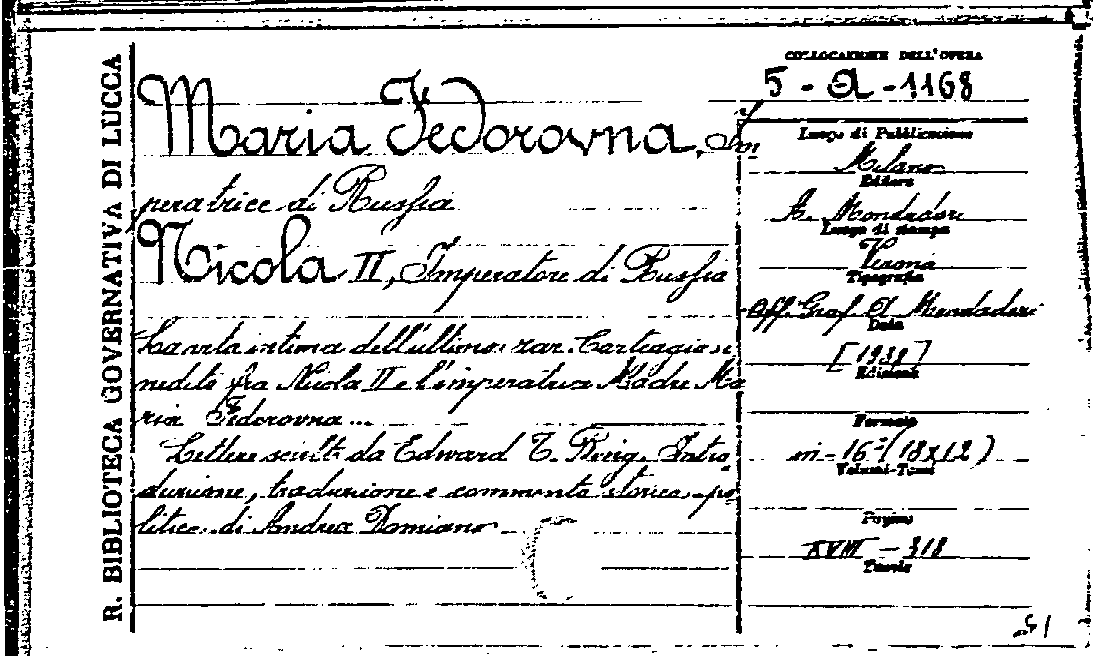 R. BIBLIOTECA GOVERNATIVA DI LUCCA
Maria Fedorovna, Im
peratrice di Russia
Nicola II, Imperatore di Russia
La vita intima dell'ultimo zar. Carteggio i
nedito fra Nicola II e l'imperatrice Madre Ma
ria Fedorovna...
Lettere scelte da Edward T. Bing. Intro
duzione, traduzione e commento storico-po
litico di Andrea Damiano
COLLOCAZIONE DELL'OPERA
5 - A - 1168
Luogo di Pubblicazione
Milano
Editore
A. Mondadori
Luogo di stampa
Verona
Tipografia
Off. Graf. A. Mondadori
Data
[1938]
Edizione
Formato
in-16° (18x12)
Volumi-Tomi
Pagine
XVIII - 318
Tavole